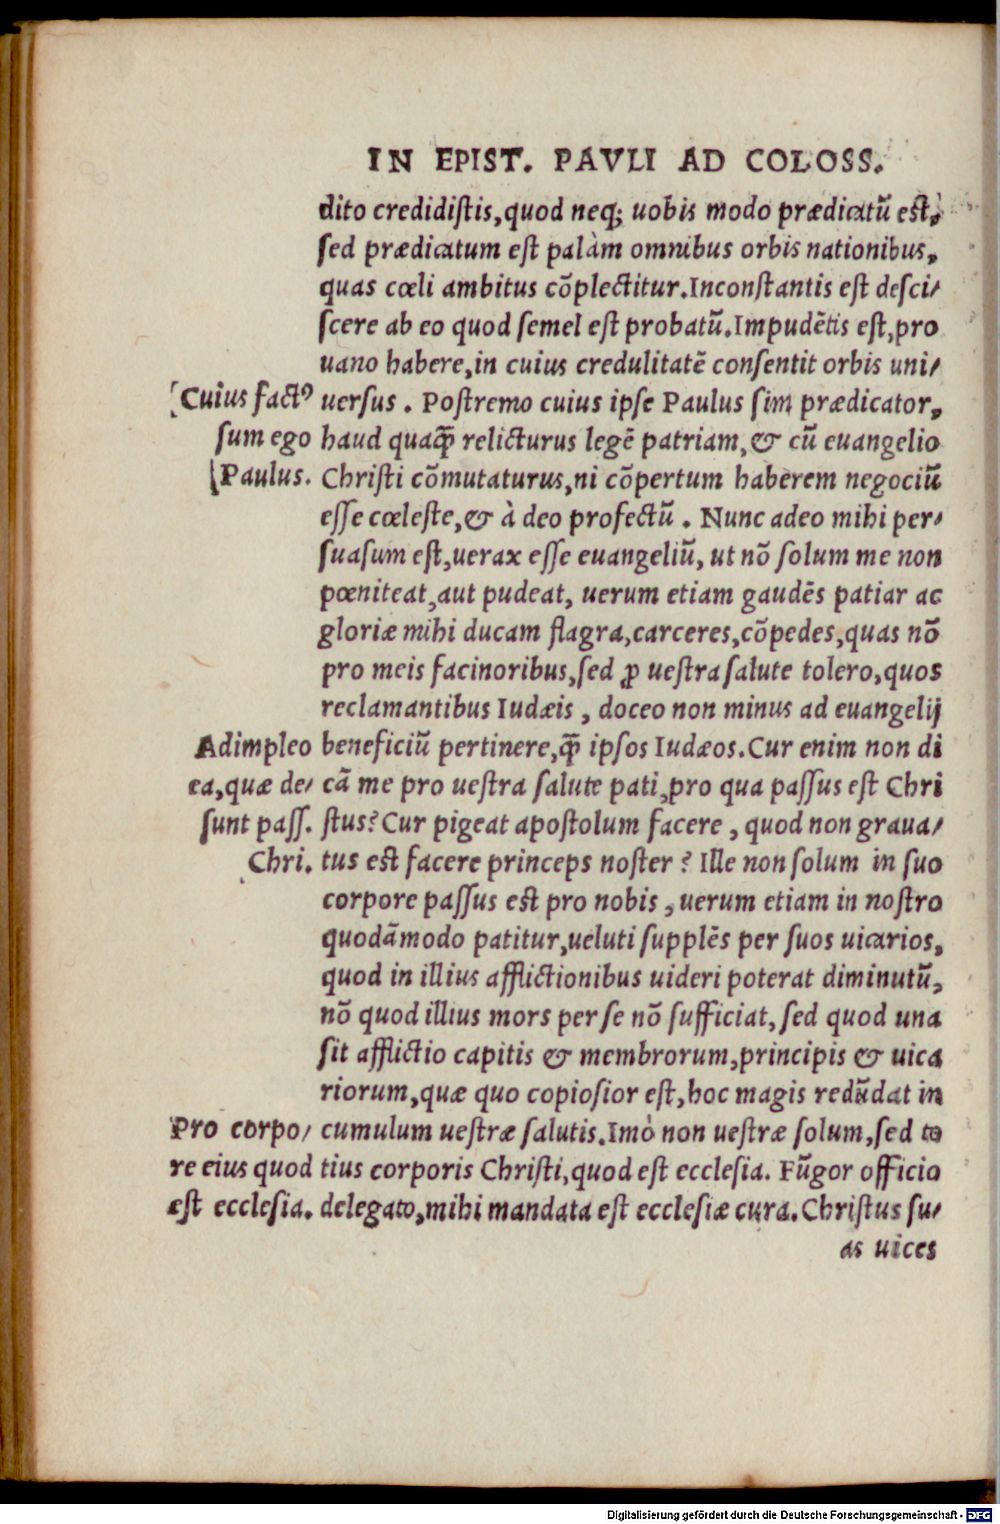 IN EPIST. PAVLI AD COLOSS.
dito credidiſtis,quod neq; uobis modo prædicatū est,
ſed prædicatum eſt palàm omnibus orbis nationibus,
quas cœli ambitus cōplectitur.Inconſtantis eſt deſci/
ſcere ab eo quod ſemel eſt probatū.Impudētis eſt,pro
uano habere,in cuius credulitatē conſentit orbis uni/
uerſus . Poſtremo cuius ipſe Paulus ſim prædicator,
haud quaꝗ̃ relicturus legē patriam,& cū euangelio
Chriſti cōmutaturus,ni cōpertum haberem negociū
eſſe cœleſte,& à deo profectū . Nunc adeo mihi per/
ſuaſum eſt,uerax eſſe euangeliū, ut nō ſolum me non
pœniteat,aut pudeat, uerum etiam gaudēs patiar ac
gloriæ mihi ducam flagra,carceres,cōpedes,quas nō
pro meis facinoribus,ſed ꝓ ueſtra ſalute tolero,quos
reclamantibus Iudæis , doceo non minus ad euangelij
beneficiū pertinere,ꝗ̃ ipſos Iudæos.Cur enim non di
cā me pro ueſtra ſalute pati,pro qua paſſus eſt Chri
ſtus? Cur pigeat apoſtolum facere , quod non graua/
tus est facere princeps noſter ? Ille non ſolum in ſuo
corpore paſſus est pro nobis , uerum etiam in noſtro
quodāmodo patitur,ueluti ſupplēs per ſuos uicarios,
quod in illius afflictionibus uideri poterat diminutū,
nō quod illius mors per ſe nō ſufficiat, ſed quod una
ſit afflictio capitis & membrorum,principis & uica
riorum,quæ quo copioſior eſt,hoc magis redūdat in
cumulum ueſtræ ſalutis.Imò non ueſtræ ſolum,ſed to
tius corporis Chriſti,quod eſt eccleſia. Fūgor officio
delegato,mihi mandata eſt eccleſiæ cura.Chriſtus ſu/
as uices
Cuius factꝰ
ſum ego
Paulus.
Adimpleo
ea,quæ de/
ſunt paſſ.
Chri.
Pro corpo/
re eius quod
eſt eccleſia.
Digitalisierung gefördert durch die Deutsche Forschungsgemeinschaft - DFG